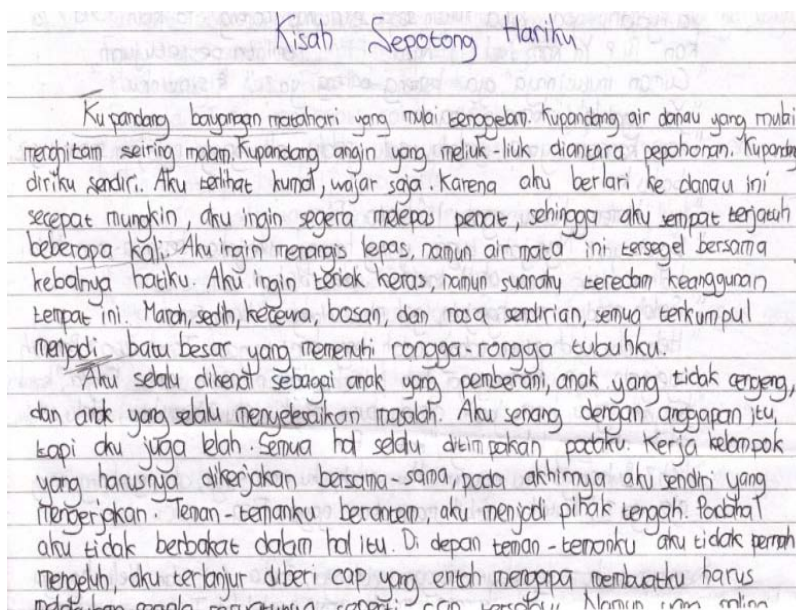 Kisah Sepotong Hariku
Kupandang bayangan matahari yang mulai tenggelam. Kupandang air danau yang mulai
menghitam seiring malam. Kupandang angin yang meliuk-liuk diantara pepohonan. Kupandang
diriku sendiri. Aku terlihat kumal, wajar saja. Karena aku berlari ke danau ini
secepat mungkin, aku ingin segera melepas penat, sehingga aku sempat terjatuh
beberapa kali. Aku ingin menangis lepas, namun airmata ini tersegel bersama
kebalnya hatiku. Aku ingin teriak keras, namun suaraku teredam keanggunan
tempat ini. Marah, sedih, kecewa, bosan, dan rasa sendirian, semua terkumpul
menjadi batu besar yang memenuhi rongga-rongga tubuhku.
Aku selalu dikenal sebagai anak yang pemberani, anak yang tidak cengeng,
dan anak yang selalu menyelesaikan masalah. Aku senang dengan anggapan itu,
tapi aku juga lelah. Semua hal selalu ditimpakan padaku. Kerja kelompok
yang harusnya dikerjakan bersama-sama, pada akhirnya aku sendiri yang
mengerjakan. Teman-temanku berantem, aku menjadi pihak tengah. Padahal
aku tidak berbakat dalam hal itu. Di depan teman-temanku aku tidak pernah
mengeluh, aku terlanjur diberi cap yang entah mengapa membuatku harus
segala sesuatunya seperti cap tersebut. Namun yang paling